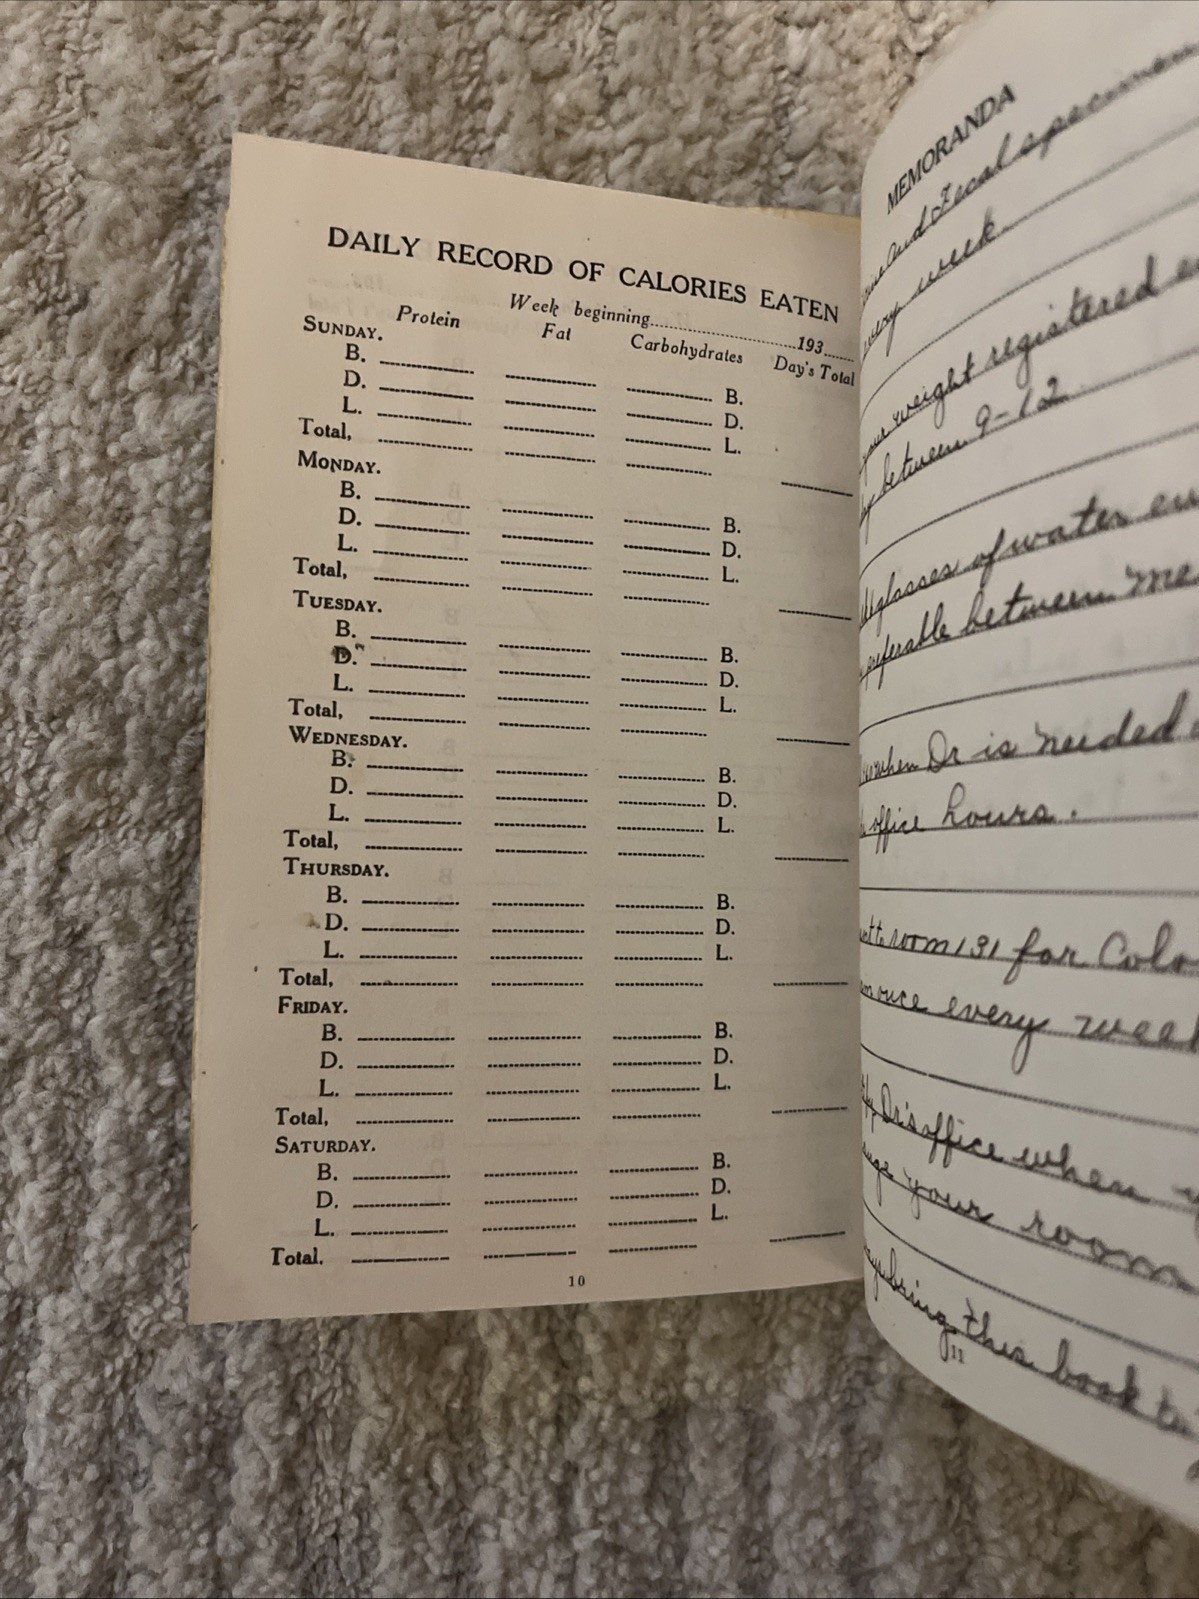 DAILY RECORD OF CALORIES EATEN
Week beginning..........................193......
Protein Fat Carbohydrates Day's Total
SUNDAY.
B. B.
D. D.
L. L.
Total,
MONDAY.
B. B.
D. D.
L. L.
Total,
TUESDAY.
B. B.
D. D.
L. L.
Total,
WEDNESDAY.
B. B.
D. D.
L. L.
Total,
THURSDAY.
B. B.
D. D.
L. L.
Total,
FRIDAY.
B. B.
D. D.
L. L.
Total,
SATURDAY.
B. B.
D. D.
L. L.
Total.
10
MEMORANDA
and Fecal specimen
every week
your weight registered
between 9-12
glasses of water
preferable between
when Dr is needed
office hours.
room 131 for
once every
Dr's office when
your room
bring this book to
11